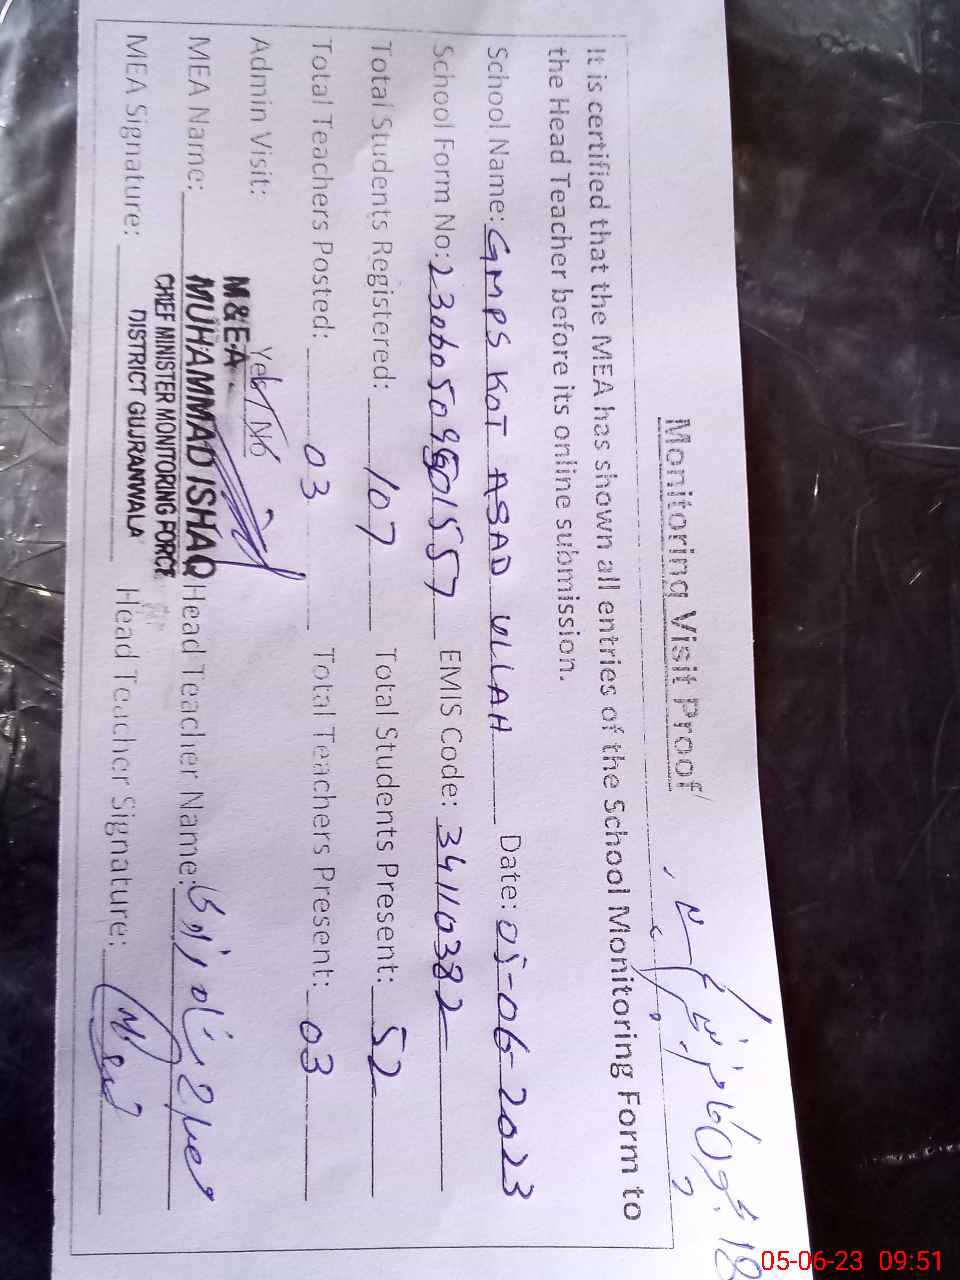 Monitoring Visit Proof
It is certified that the MEA has shown all entries of the School Monitoring Form to
the Head Teacher before its online submission.
School Name: GMPS KOT ASAD ULLAH Date: 05-06-2023
School Form No: EMIS Code: 34110382
Total Students Registered: 107 Total Students Present: 52
Total Teachers Posted: 03 Total Teachers Present: 03
Admin Visit: Yes / No
M&EA
MEA Name: MUHAMMAD ISHAQ Head Teacher Name:
CHIEF MINISTER MONITORING FORCE
MEA Signature: DISTRICT GUJRANWALA Head Teacher Signature:
18
05-06-23 09:51